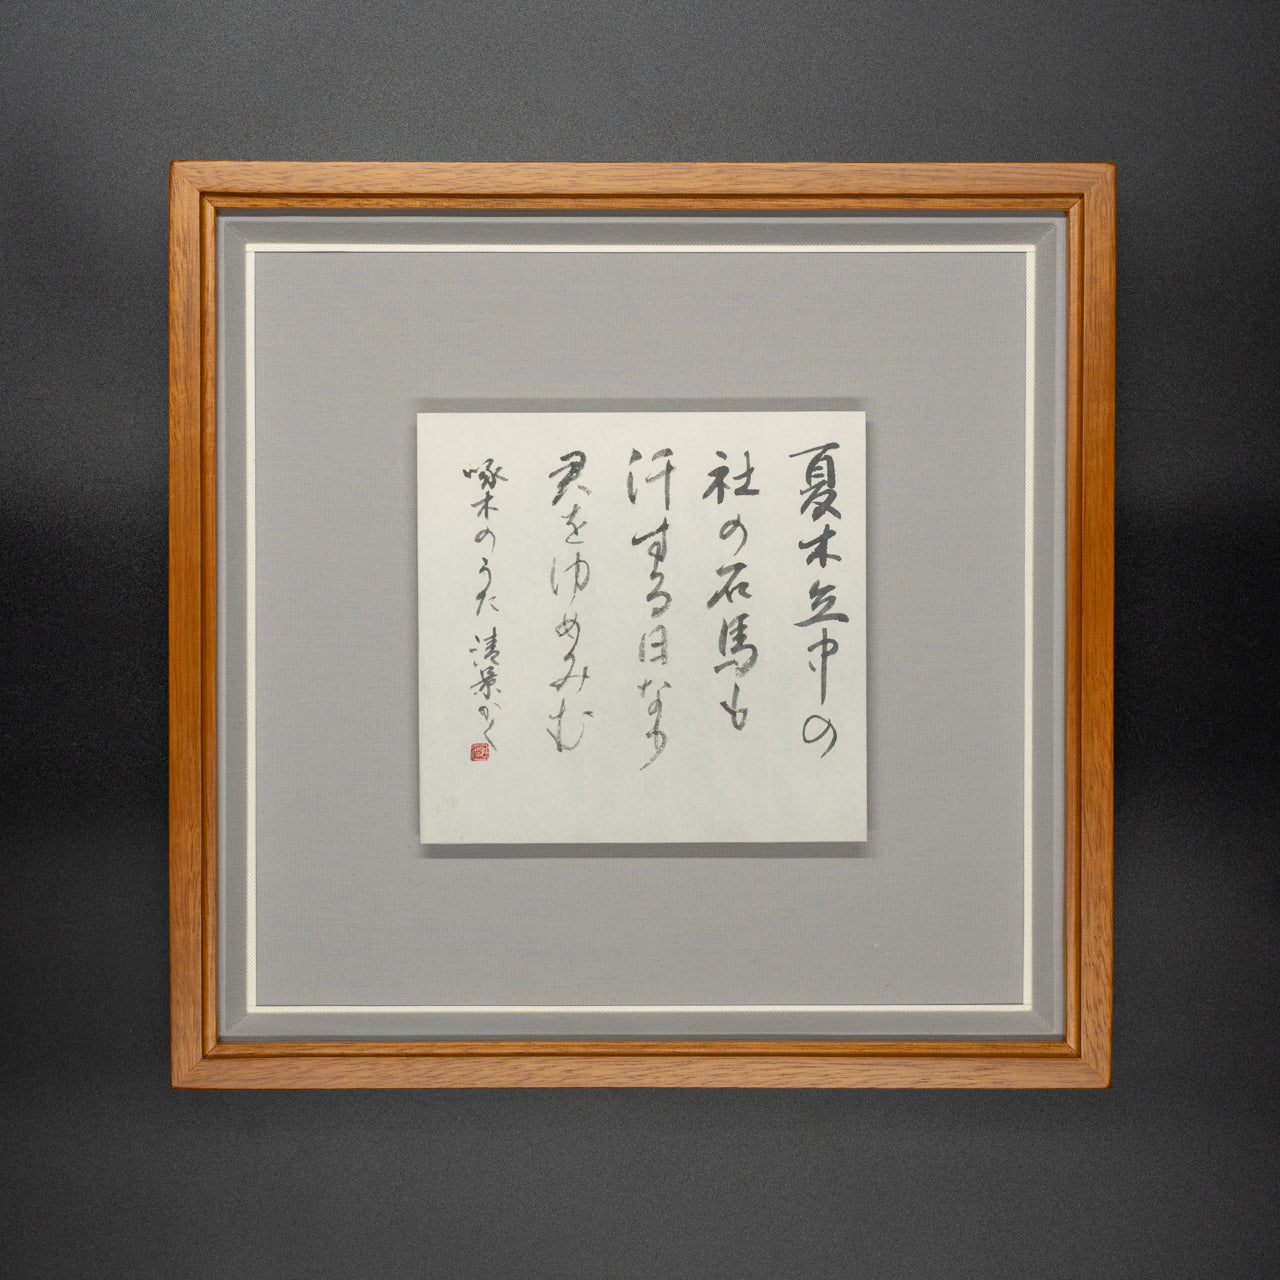 夏木立中の
社の石馬も
汗する日なり
君をゆめみむ
啄木のうた 清景かく